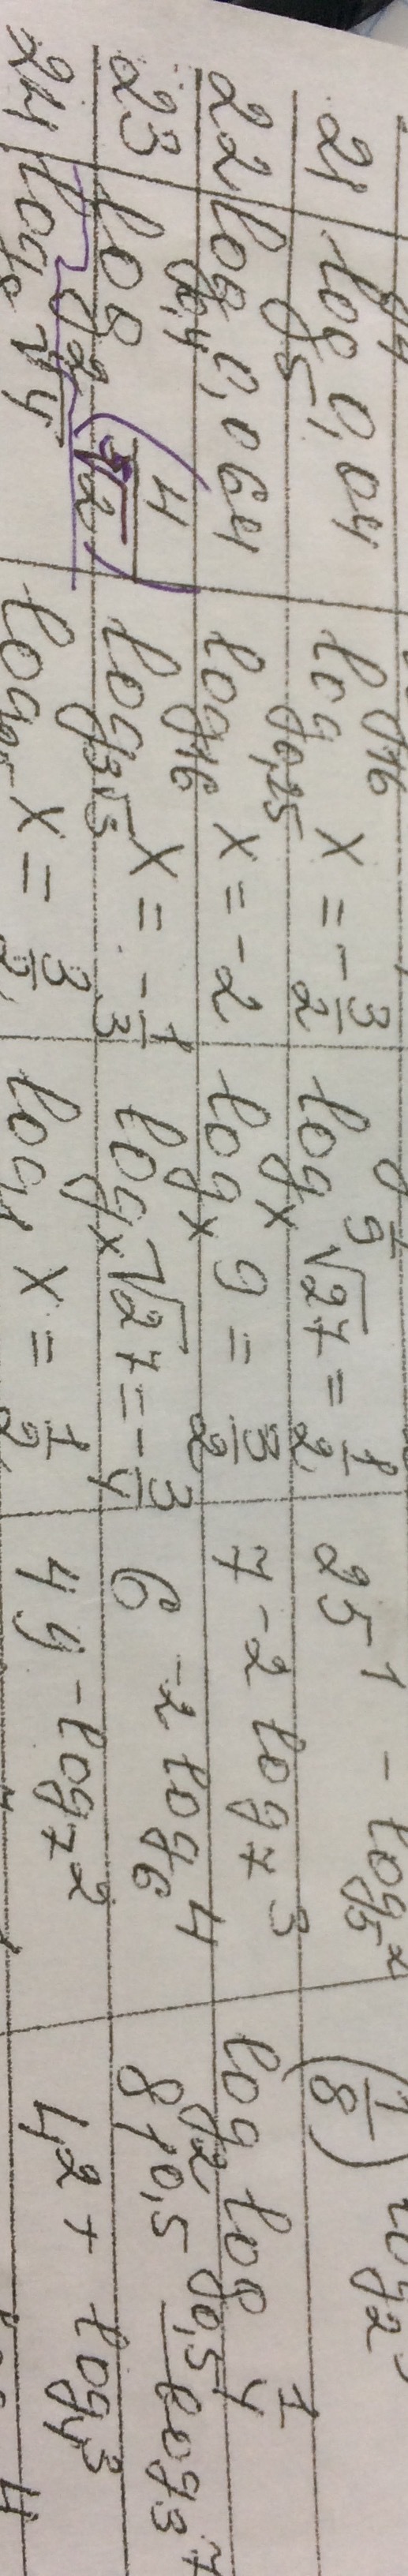 21 log₅ 0,04 log₀,₂₅ x = -3/2 logₓ √27 = 1/2 25^(1 - log₅ 2) (1/8)^(log₂
22 log₀,₄ 0,064 log₁₆ x = -2 logₓ 9 = 3/2 7^(-2 log₇ 3) log₂ log₀,₅ 1/4
23 log₂ (4/√2) log₃√3 x = -1/3 logₓ √27 = -3/4 6^(-2 log₆ 4) 81^(0,5 - log₃ 7)
24 x = 3/2 x = 1/2 49^(-log₇ 2) 4^(2 + log₄ 3)